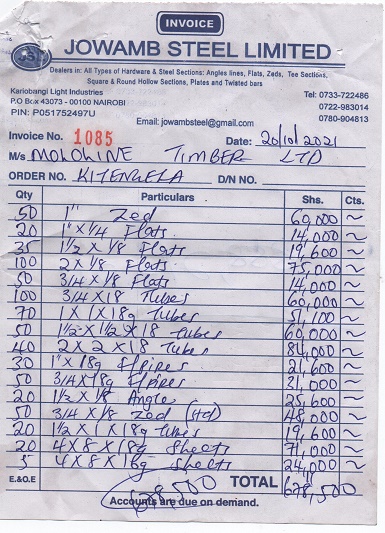 INVOICE
JSL JOWAMB STEEL LIMITED
Dealers in: All Types of Hardware & Steel Sections: Angles lines, Flats, Zeds, Tee Sections,
Square & Round Hollow Sections, Plates and Twisted bars
Kariobangi Light Industries Tel: 0733-722486
P.O Box 43073 - 00100 NAIROBI 0722-983014
PIN: P051752497U 0780-904813
Email: jowambsteel@gmail.com
Invoice No. 1085 Date: 20/10/2021
M/s MOLOLINE TIMBER LTD
ORDER NO. KITENGELA D/N NO.
Qty Particulars Shs. Cts.
50 1" Zed 60,000 ~
20 1" X 1/4 Flats 14,000 ~
35 1 1/2 X 1/8 Flats 19,600 ~
100 2 X 1/8 Flats 75,000 ~
50 3/4 X 1/8 Flats 14,000 ~
100 3/4 X 18 Tubes 60,000 ~
70 1 X 1 X 18g Tubes 51,100 ~
50 1 1/2 X 1 1/2 X 18 tubes 60,000 ~
40 2 X 2 X 18 Tubes 84,000 ~
30 1" X 18g F/pipes 21,600 ~
50 3/4 X 18g F/pipes 31,000 ~
20 1 1/2 X 1/8 Angle 25,600 ~
50 3/4 X 1/8 Zed (std) 48,000 ~
20 1 1/2 X 1 X 18g Tubes 19,600 ~
20 4 X 8 X 18g Sheets 71,000 ~
5 4 X 8 X 16g Sheets 24,000 ~
E.&O.E 678,500 TOTAL 678,500
Accounts are due on demand.